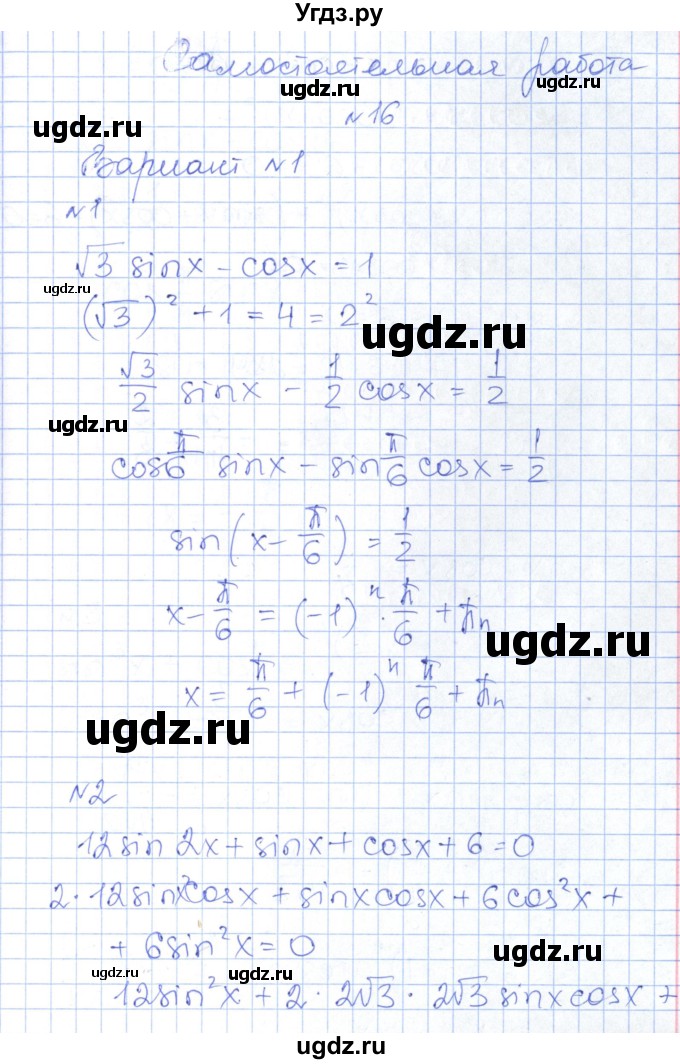 Угдз.ру
Самостоятельная работа
ugdz.ru
ugdz.ru
№16
ugdz.ru
Вариант №1
№1
√3 sinx - cosx = 1
ugdz.ru
(√3)² + 1 = 4 = 2²
ugdz.ru
√3/2 sinx - 1/2 cosx = 1/2
ugdz.ru
cos π/6 sinx - sin π/6 cosx = 1/2
sin(x - π/6) = 1/2
x - π/6 = (-1)ⁿ · π/6 + πn
ugdz.ru
x = π/6 + (-1)ⁿ π/6 + πn
ugdz.ru
№2
12sin 2x + sinx + cosx + 6 = 0
2·12sinx cosx + sinx cosx + 6cos²x +
+ 6sin²x = 0
ugdz.ru
ugdz.ru
12sin²x + 2·2√3·2√3 sinx cosx +
ugdz.ru
ugdz.ru